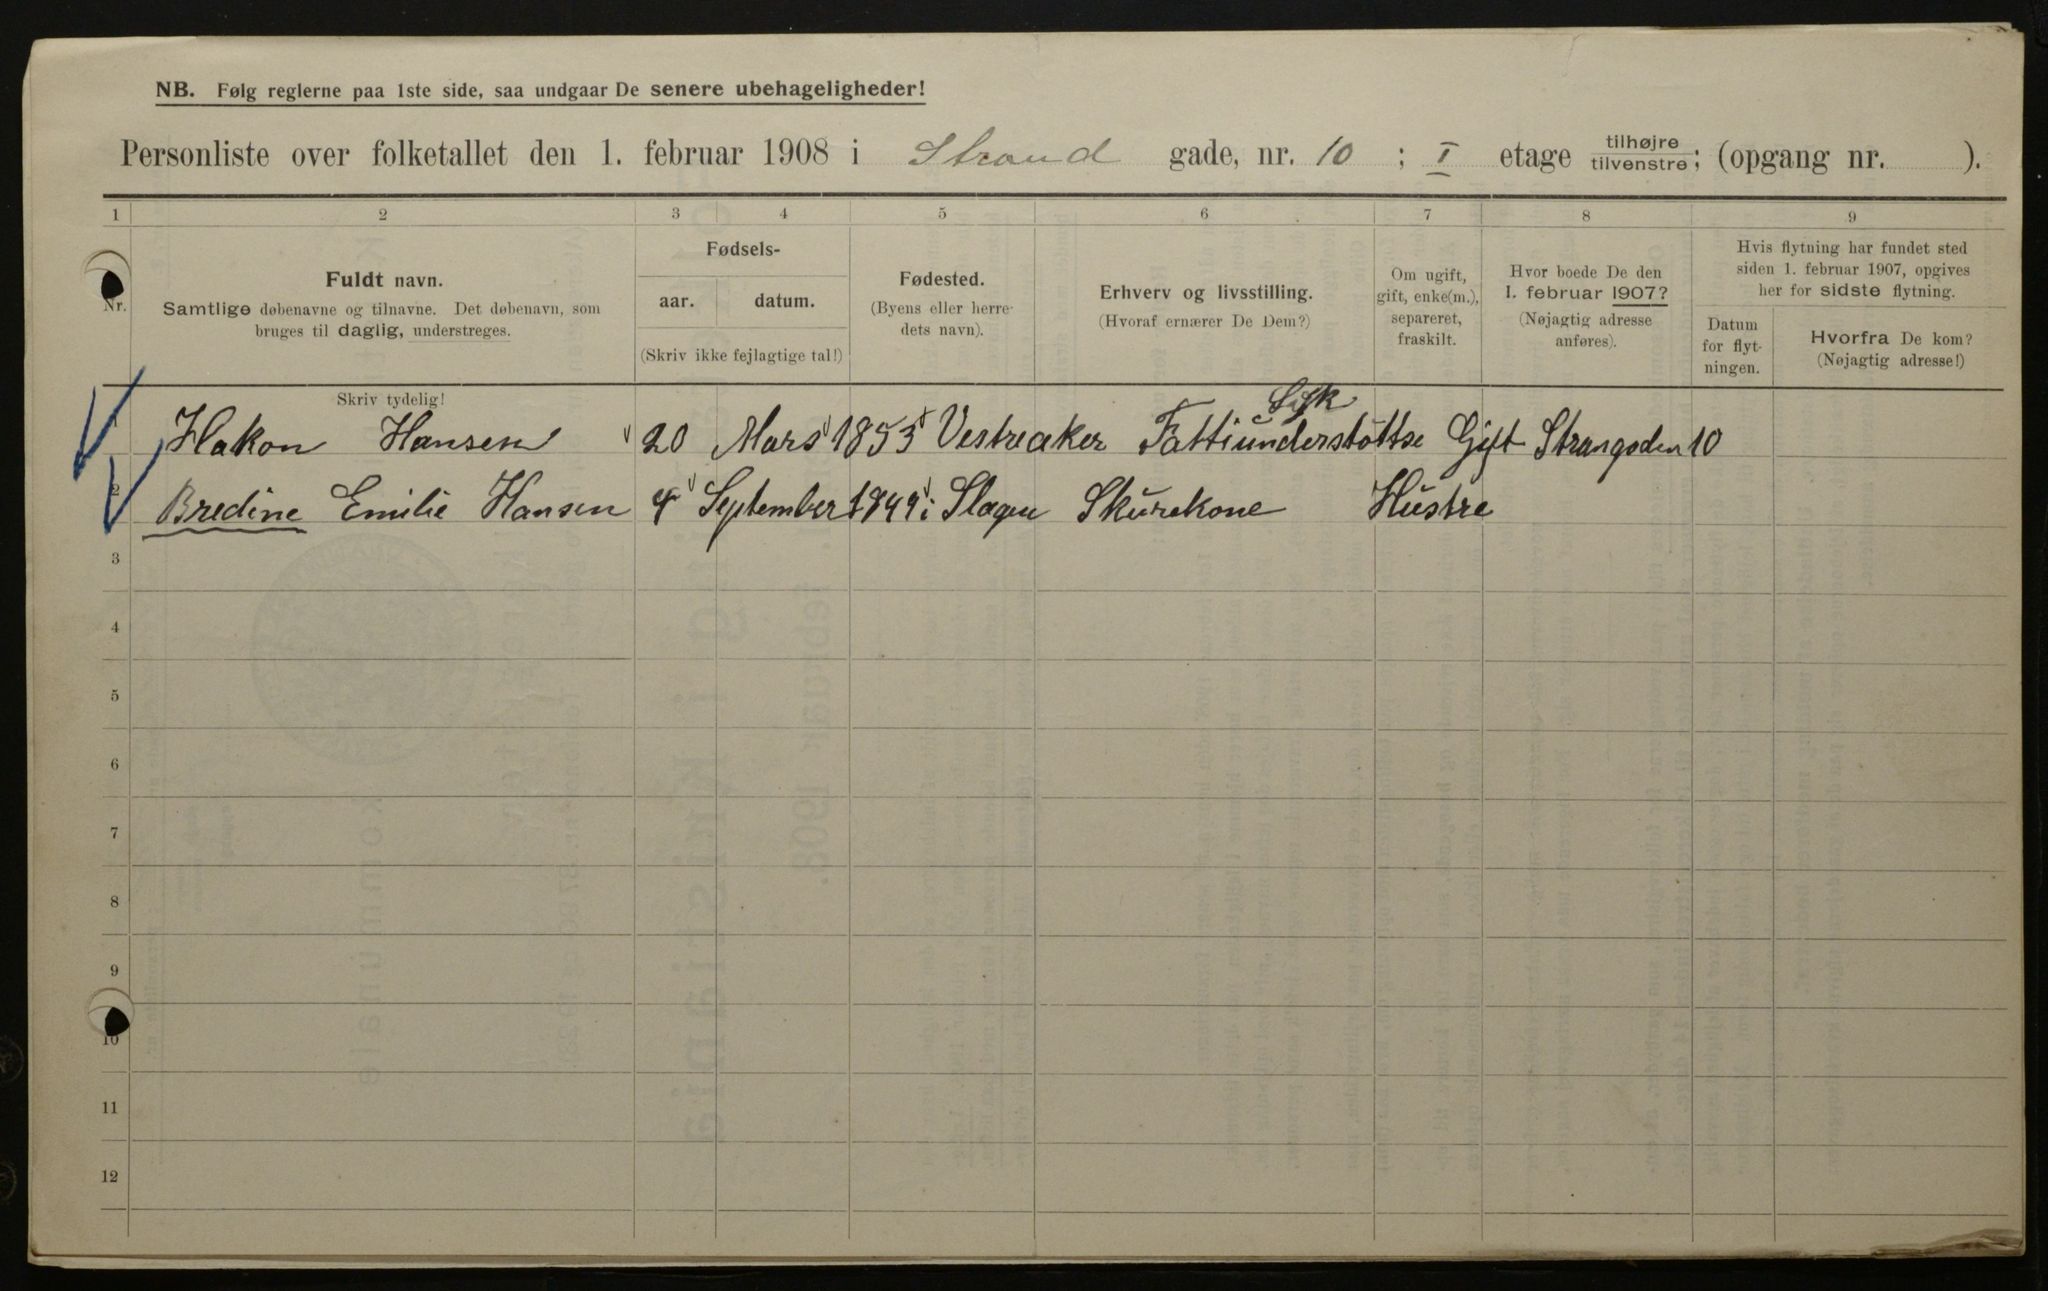 NB. Følg reglerne paa 1ste side, saa undgaar De senere ubehageligheder!
Personliste over folketallet den 1. februar 1908 i Strand gade, nr. 10 ; I etage tilhøjre tilvenstre; (opgang nr. ).
1 2 3 4 5 6 7 8 9
Nr.
Fuldt navn.
Samtlige døbenavne og tilnavne. Det døbenavn, som
bruges til daglig, understreges.
Fødsels-
aar. datum.
(Skriv ikke fejlagtige tal!)
Fødested.
(Byens eller herre-
dets navn).
Erhverv og livsstilling.
(Hvoraf ernærer De Dem?)
Om ugift,
gift, enke(m.),
separeret,
fraskilt.
Hvor boede De den
1. februar 1907?
(Nøjagtig adresse
anføres).
Hvis flytning har fundet sted
siden 1. februar 1907, opgives
her for sidste flytning.
Datum
for flyt-
ningen.
Hvorfra De kom?
(Nøjagtig adresse!)
Skriv tydelig!
Hakon Hansen 20 Mars 1853 Vestreaker Fattiunderstöttse Gift Strangaden 10
2 Bredine Emilie Hansen 4 September i Slagen Skurekone Hustre
3
4
5
6
7
8
9
10
11
12